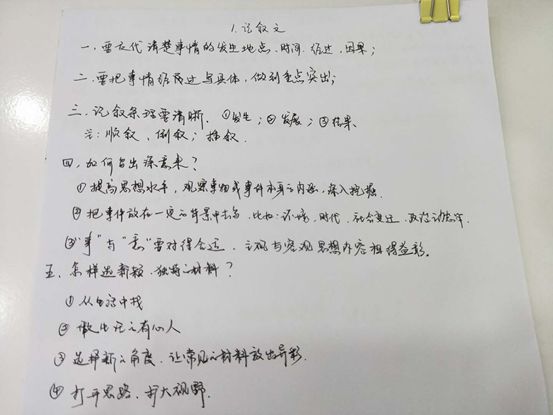 1.记叙文
一.要交代清楚事情的发生地点.时间.经过.因果;
二.要把事情经过写具体,做到重点突出;
三.记叙条理要清晰. ①发生;②发展;③结果.
注:顺叙、倒叙;插叙.
四.如何写出深意来?
①提高思想水平,观察事物或事件本身之内涵,深入挖掘.
②把事件放在一定的背景中去写,比如:环境,时代,社会变迁,
③"事"与"意"要对得合适,主观与客观思想内容相得益彰.
五.怎样选新颖.独特之材料?
①从生活中找
②做生活之有心人
③选择新之角度.让常见之材料放出异彩.
④打开思路.扩大视野.